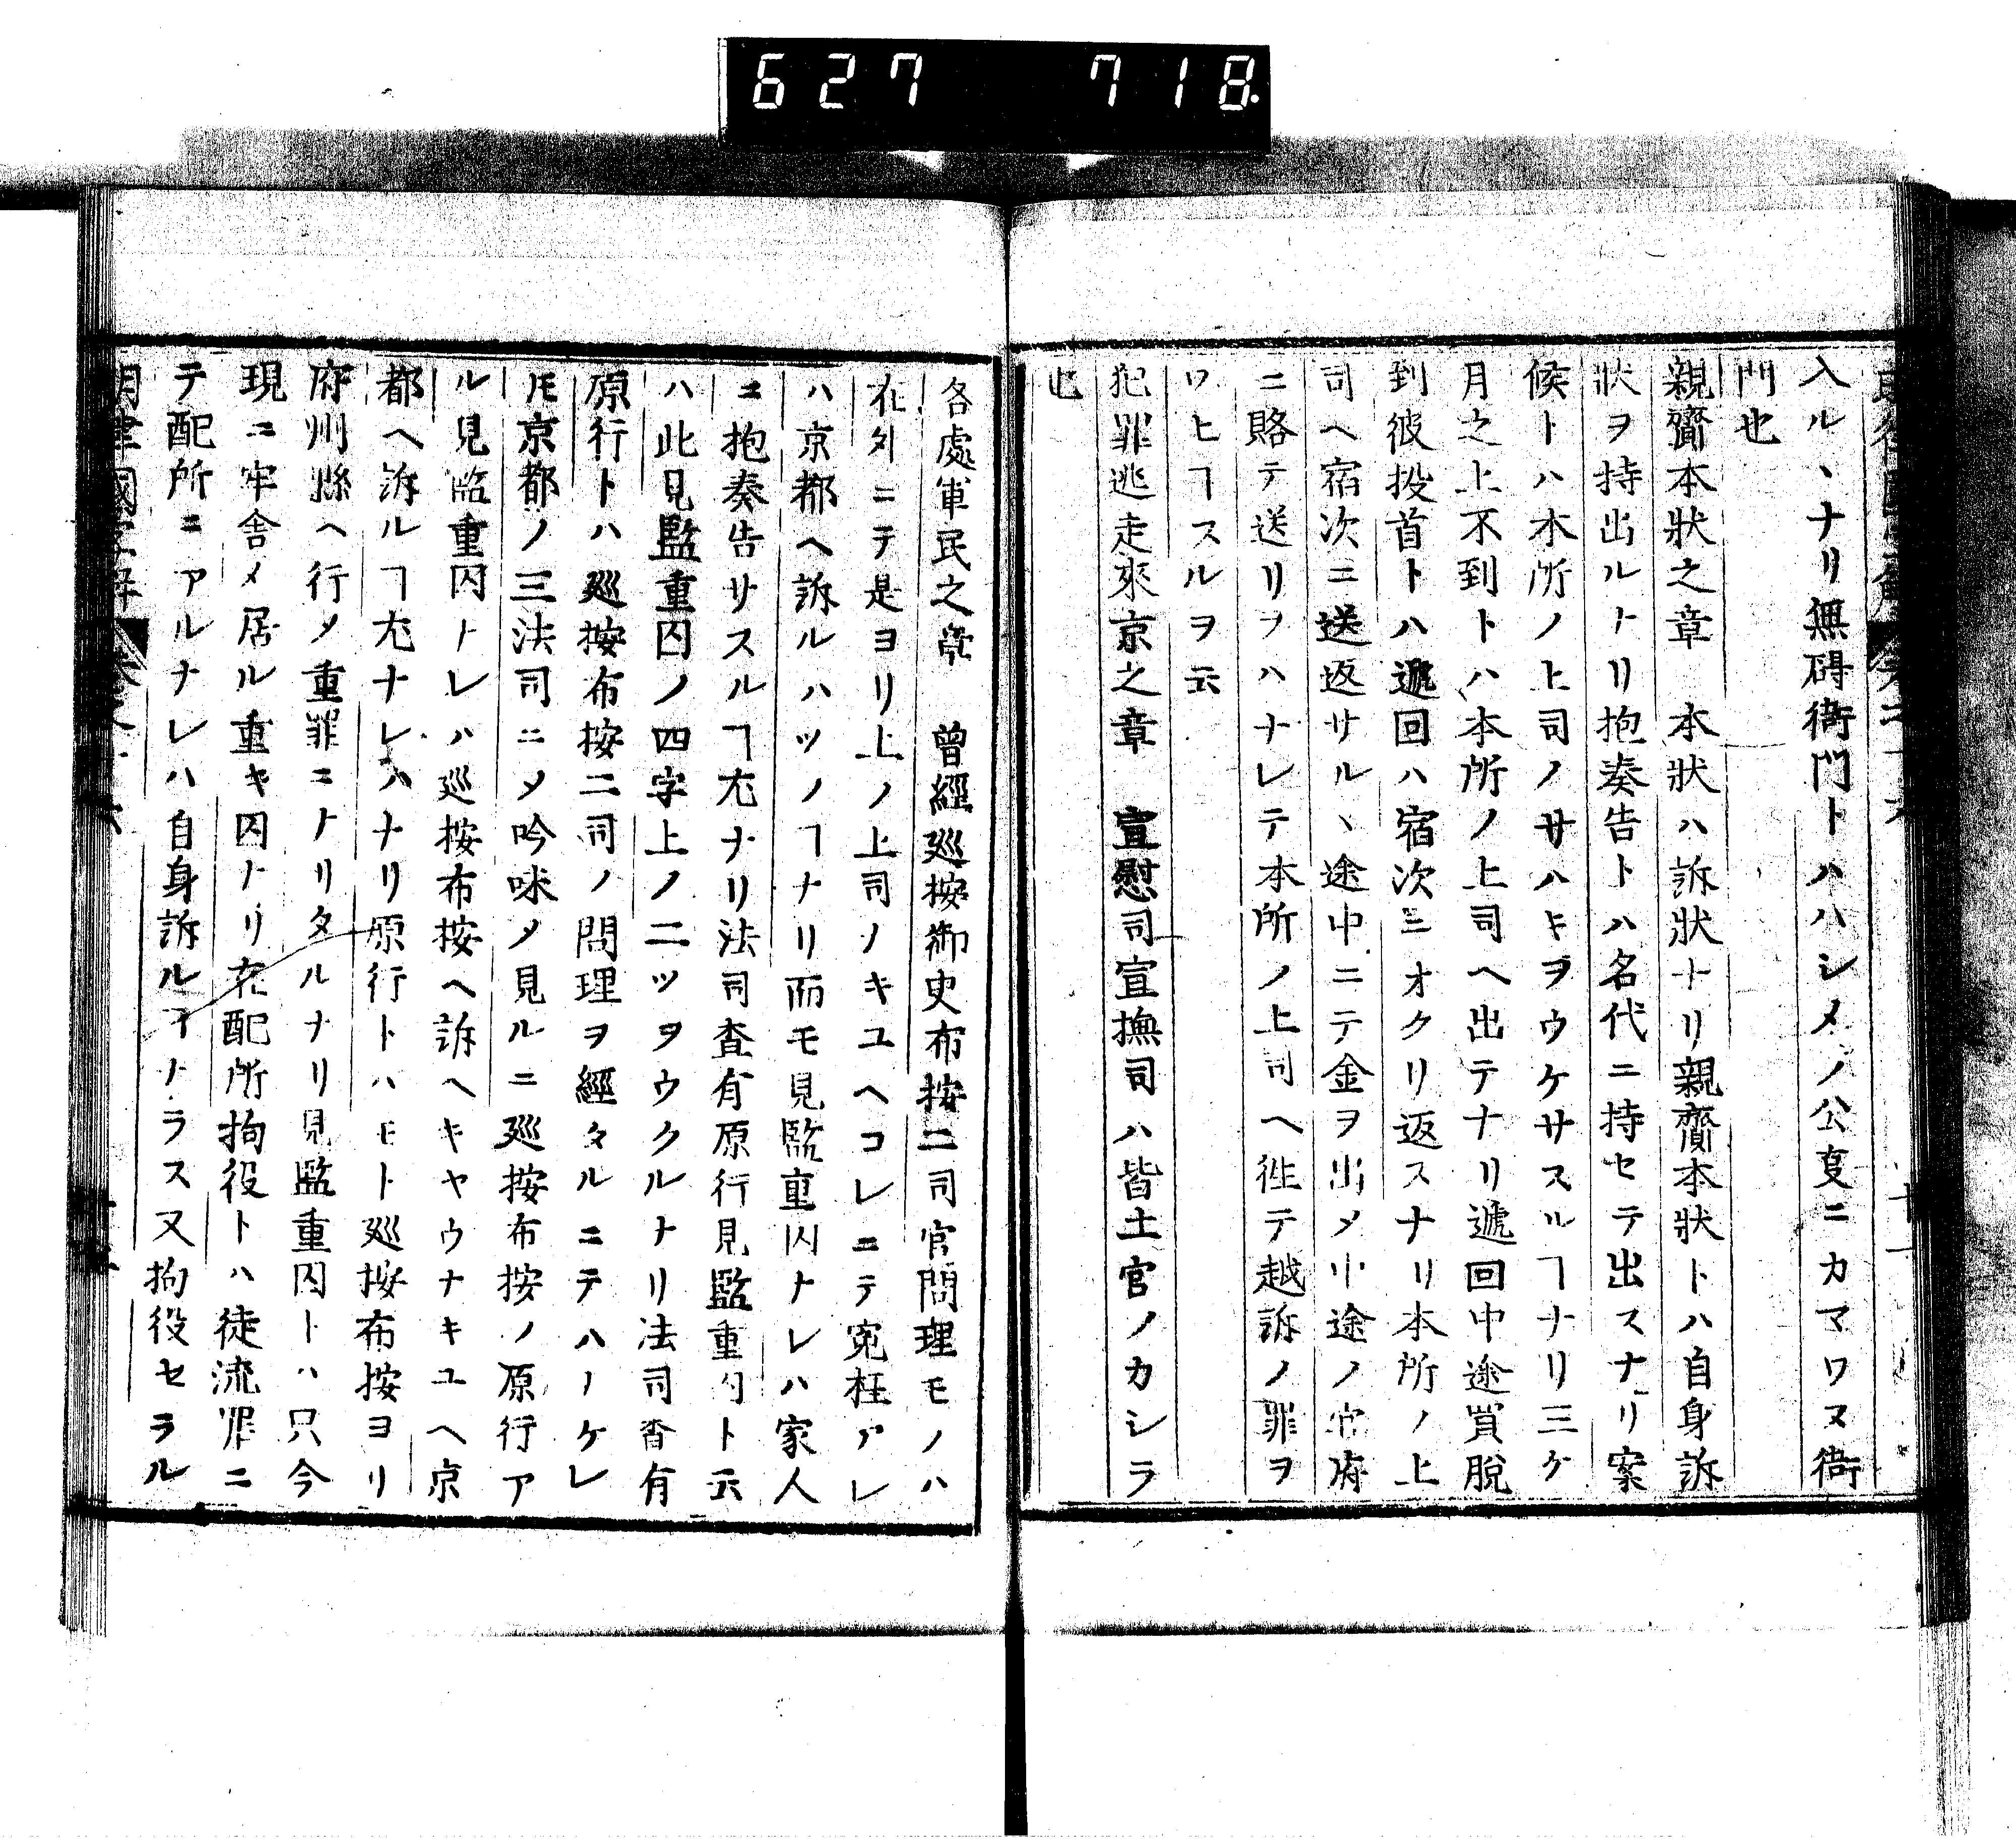 627 718.
入ル、ナリ無碍衙門トハハシメノ公㕝ニカマワヌ衙
門也
親齎本狀之章 本狀ハ訴狀ナリ親齎本狀トハ自身訴
狀ヲ持出ルトリ抱奏告トハ名代ニ持セテ出スナリ案
候トハ本所ノ上司ノサハキヲウケサスルヿナリ三ケ
月之上不到トハ本所ノ上司ヘ出テナリ遞回中途買脫
到彼投首トハ遞回ハ宿次ニオクリ返スナリ本所ノ上
司ヘ宿次ニ送返サル、途中ニテ金ヲ出メ中途ノ官府
ニ賂テ送リヲハナレテ本所ノ上司ヘ徃テ越訴ノ罪ヲ
ワヒヿスルヲ云
犯罪逃走來京之章 宣慰司宣撫司ハ皆土官ノカシラ
也
各處軍民之章 曾經廵按御史布按二司官問理モノハ
在外ニテ是ヨリ上ノ上司ノキユヘコレニテ寃枉アレ
ハ京都ヘ訴ルハツノヿナリ而モ見監重囚ナレハ家人
ニ抱奏告サスルヿ尤ナリ法司査有原行見監重囚ト云
ハ此見監重囚ノ四字上ノ二ツヲウクルナリ法司査有
原行トハ廵按布按二司ノ問理ヲ經タルニテハナケレ
𪜈京都ノ三法司ニメ吟味メ見ルニ廵按布按ノ原行ア
ル見監重囚トレハ廵按布按ヘ訴ヘキヤウナキユヘ京
都ヘ訴ルヿ尤ナレハナリ原行トハモト廵按布按ヨリ
府州縣ヘ行メ重罪ニナリタルナリ見監重囚トハ只今
現ニ牢舎メ居ル重キ囚ナリ在配所拘役トハ徒流罪ニ
テ配所ニアルナレハ自身訴ルヿナラス又拘役セラル
明律國字解